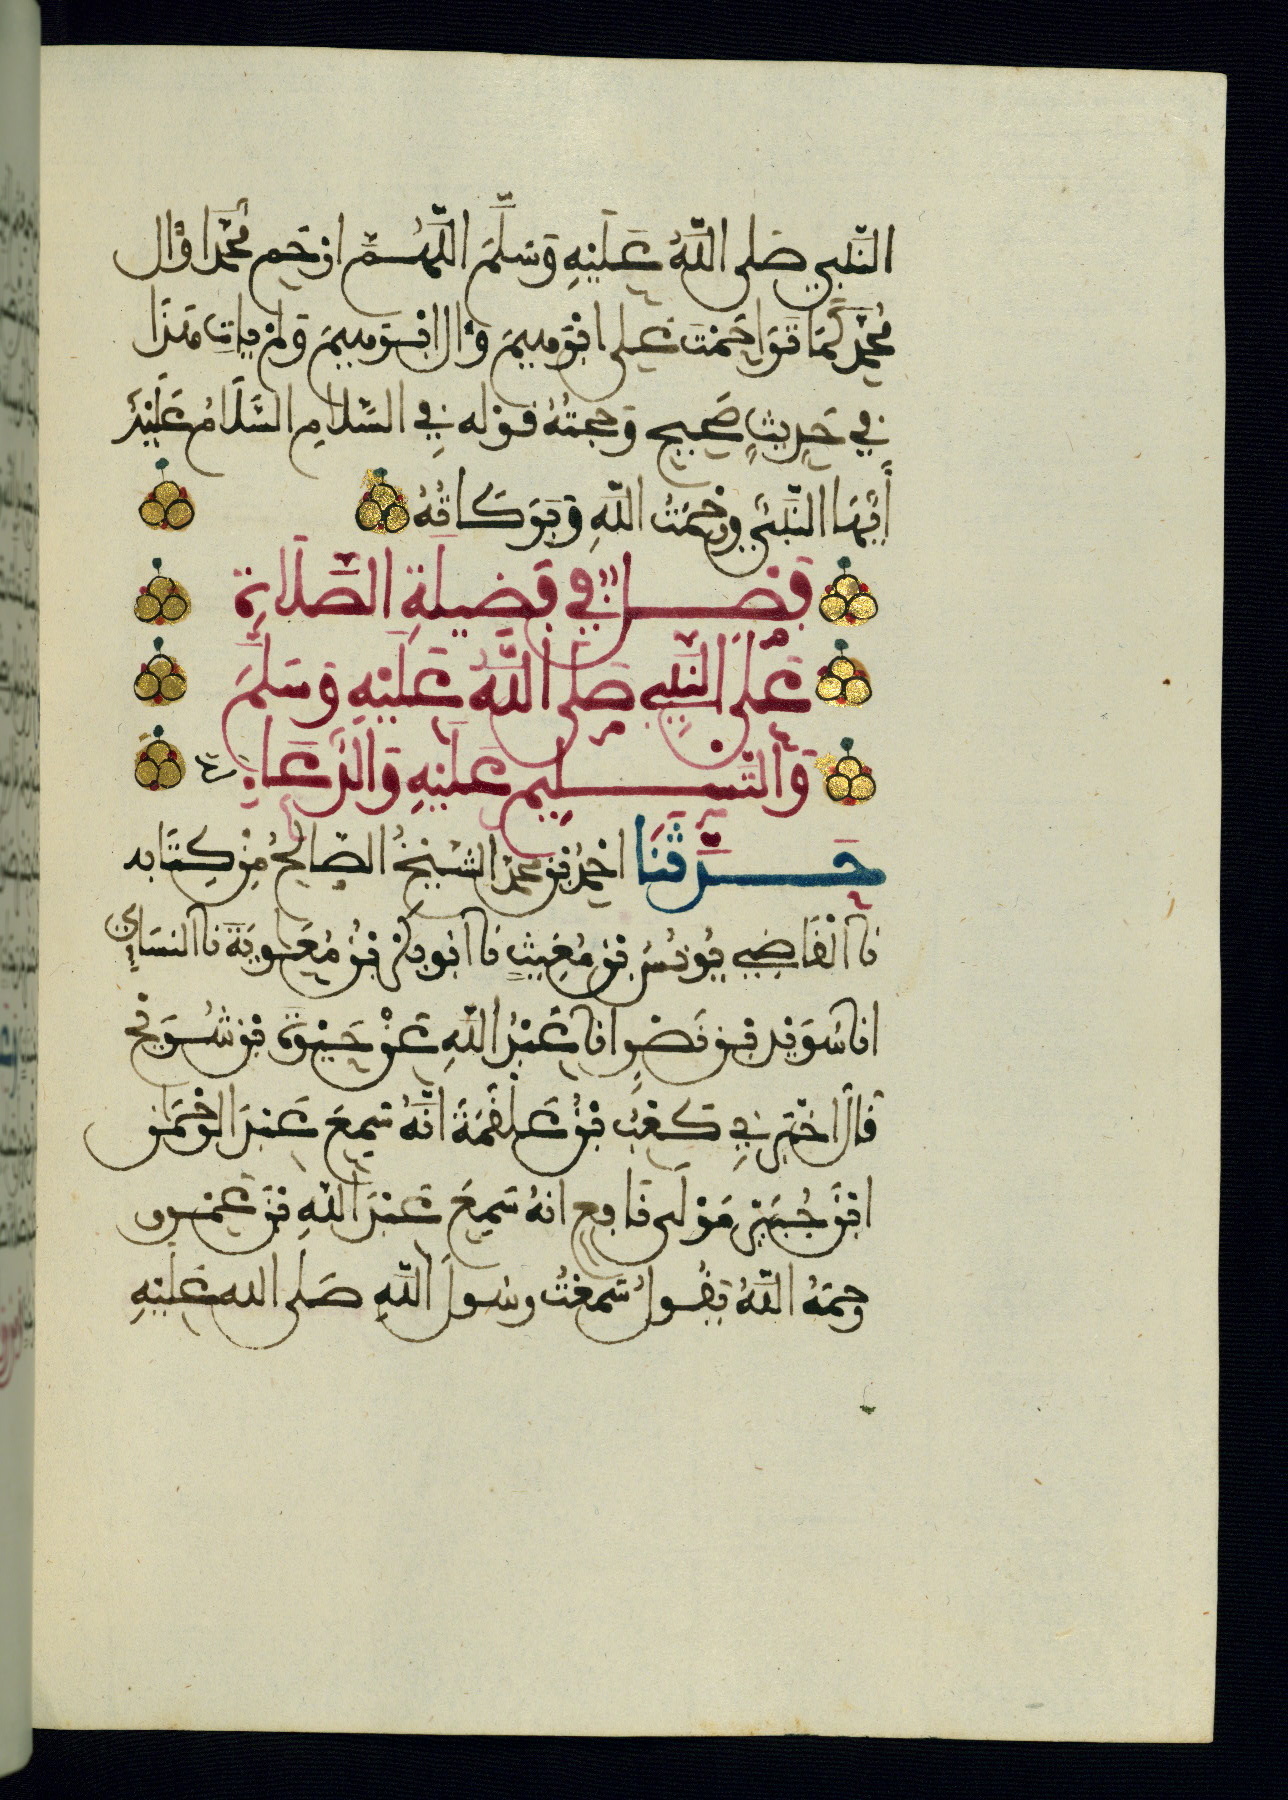 النَّبِي صَلى اللَّهُ عَلَيْهِ وَسَلَّمَ اللَّهُمَّ ارْحَم مُحَمَّدا وَّال
مُحَمَّد كَمَا تَرَحَّمْتَ عَلى ابْرَهِيمَ وَّال ابْرَهِيمَ وَلَمْ يات هَذَا
فِي حَدِيثٍ صَحِيحٍ وَحجتُهُ قَوْله فِي السَّلامِ السَّلَامُ عَلَيْكَ
أَيُّهَا النَّبيُّ وَرَحْمَتُ اللَّهِ وَبَرَكَاتُهُ
فَصْلٌ فِي فَضِيلَةِ الصَّلَاةِ
عَلَى النَّبِيِّ صَلَّى اللَّهُ عَلَيْهِ وَسَلَّمَ
وَالتَّسْلِيمِ عَلَيْهِ وَالدُّعَاءِ
حَدَّثَنَا احْمَدُ بْنُ مُحَمَّد الشيْخُ الصَّالحُ مِنْ كِتَابه
نا الْقَاضِي يُونُسُ بْنُ مُغِيثٍ نا ابُو بكْر بْنُ مُعَاوِيَةَ نا النسَائيّ
انا سُوَيْد بْن نَصْرٍ انا عَبْدُ اللَّهِ عَنْ حَيْوَةَ بْنِ شُرَيْح
قَالَ اخْبَرَنِي كَعْبُ بْنُ عَلْقَمَةَ انَّهُ سَمِعَ عَبْدَ الرَّحْمَن
ابْنَ جُبَيْر مَوْلَى نَافِعٍ انهُ سَمِعَ عَبْدَ اللَّهِ بْنَ عَمْرو
رحمَهُ اللَّهُ يَقُولُ سَمعْتُ رسُولَ اللَّهِ صَلى الله عَلَيْهِ